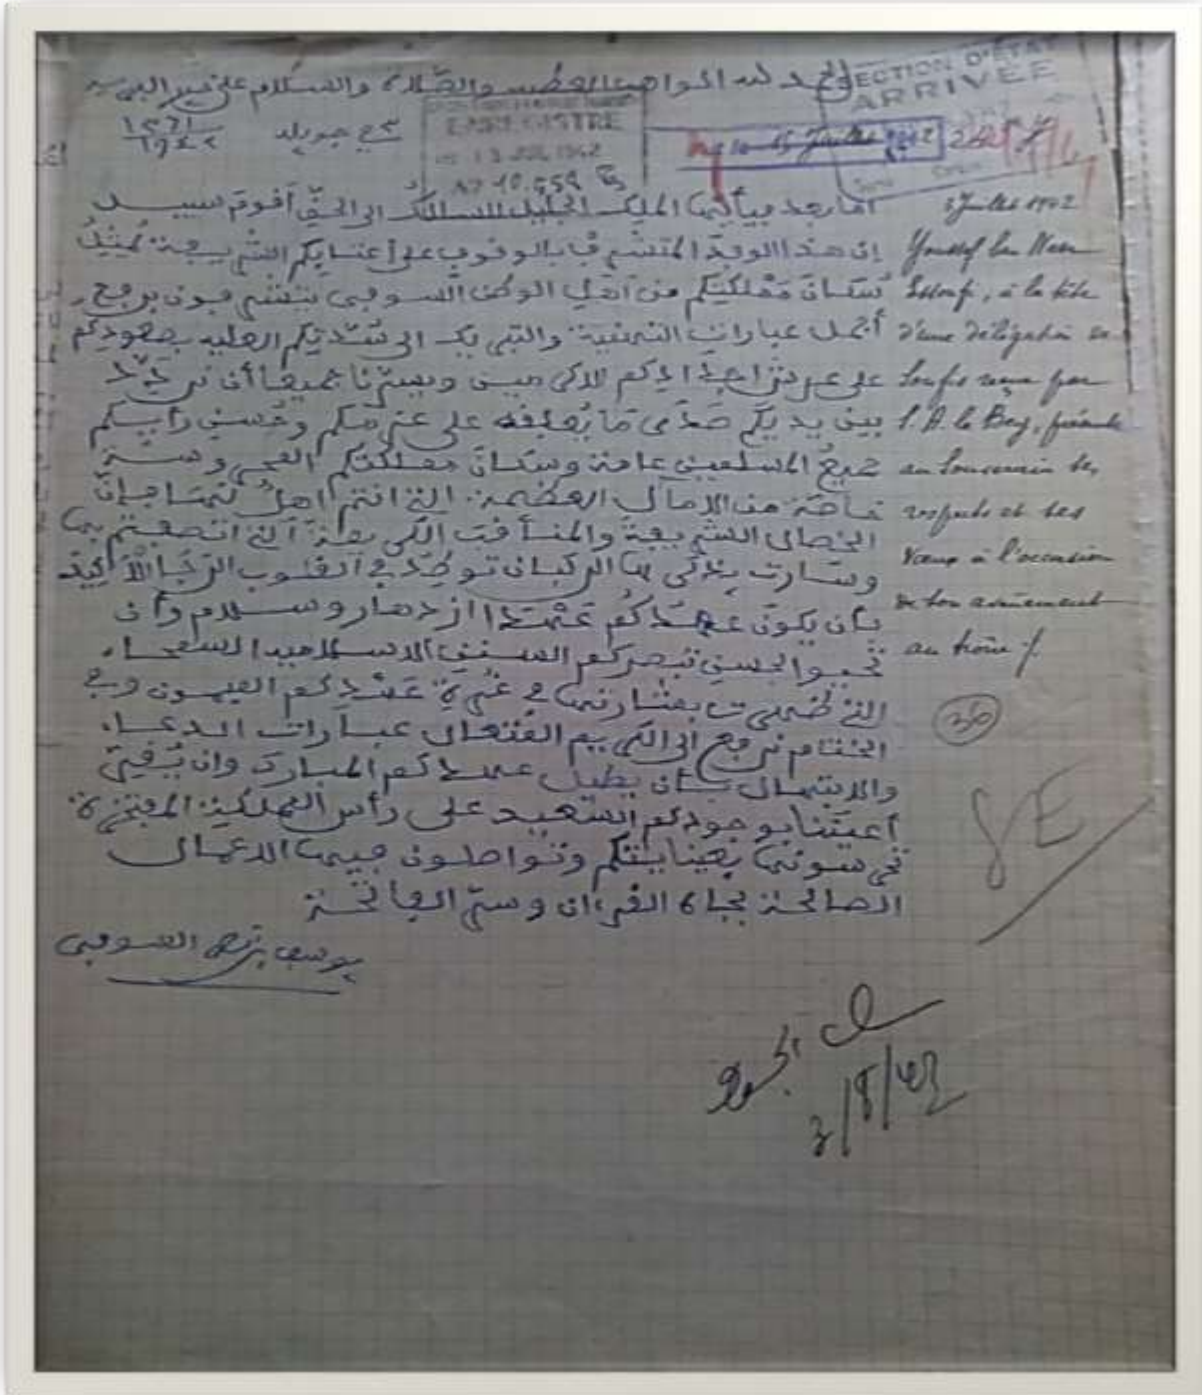 الحمد لله الواهب العطيه والصلاة والسلام على خير البريه
SECTION D'ETAT
ARRIVÉE
ENREGISTRE
13 JUIL 1942
في جويليه
1942
أما بعد فيأيها الملك الجليل السالك الى الحق أقوم سبيل
إن هذا الوفد المتشرف بالوقوف على أعتابكم الشريفة يمثل
سكان مملكتكم من أهل الوطن السوفي يتشرفون برفع
أجمل عبارات التهنئة والتبريك الى سدتكم العليه بصعودكم
على عرش اجدادكم الاكرمين ويسرنا جميعا أن نردد
بين يديكم صدى ما يعلقه على عزمكم وحسن رأيكم
جميع المسلمين عامة وسكان مملكتكم
خاصة من الآمال العظيمة التي انتم اهل لها فإن
الخصال الشريفة والمناقب الكريمة التي اتصفتم بها
وسارت بذكرها الركبان توطد في القلوب الرجاء الأكيد
بأن يكون عهدكم عهد ازدهار وسلام وأن
السنن الاسلامية السمحاء
التي ظهرت بشارتها في غرة عهدكم الميمون وفي
الختام نرفع الى الكريم المتعال عبارات الدعاء
والابتهال بأن يطيل عهدكم المبارك وان يقر
أعيننا بوجودكم السعيد على رأس المملكة المفتخرة
تحرسونها بعنايتكم وتواصلون فيها الاعمال
الصالحة بجاه القرءان وسر الفاتحة
يوسف السوفي
3 Juillet 1942
Youssef ben
Essoufi, à la tête
d'une délégation de
Soufis reçue par
S. A. le Bey, présente
au Souverain ses
respects et ses
vœux à l'occasion
de son avènement
au trône /.
36
SE
3/8/42